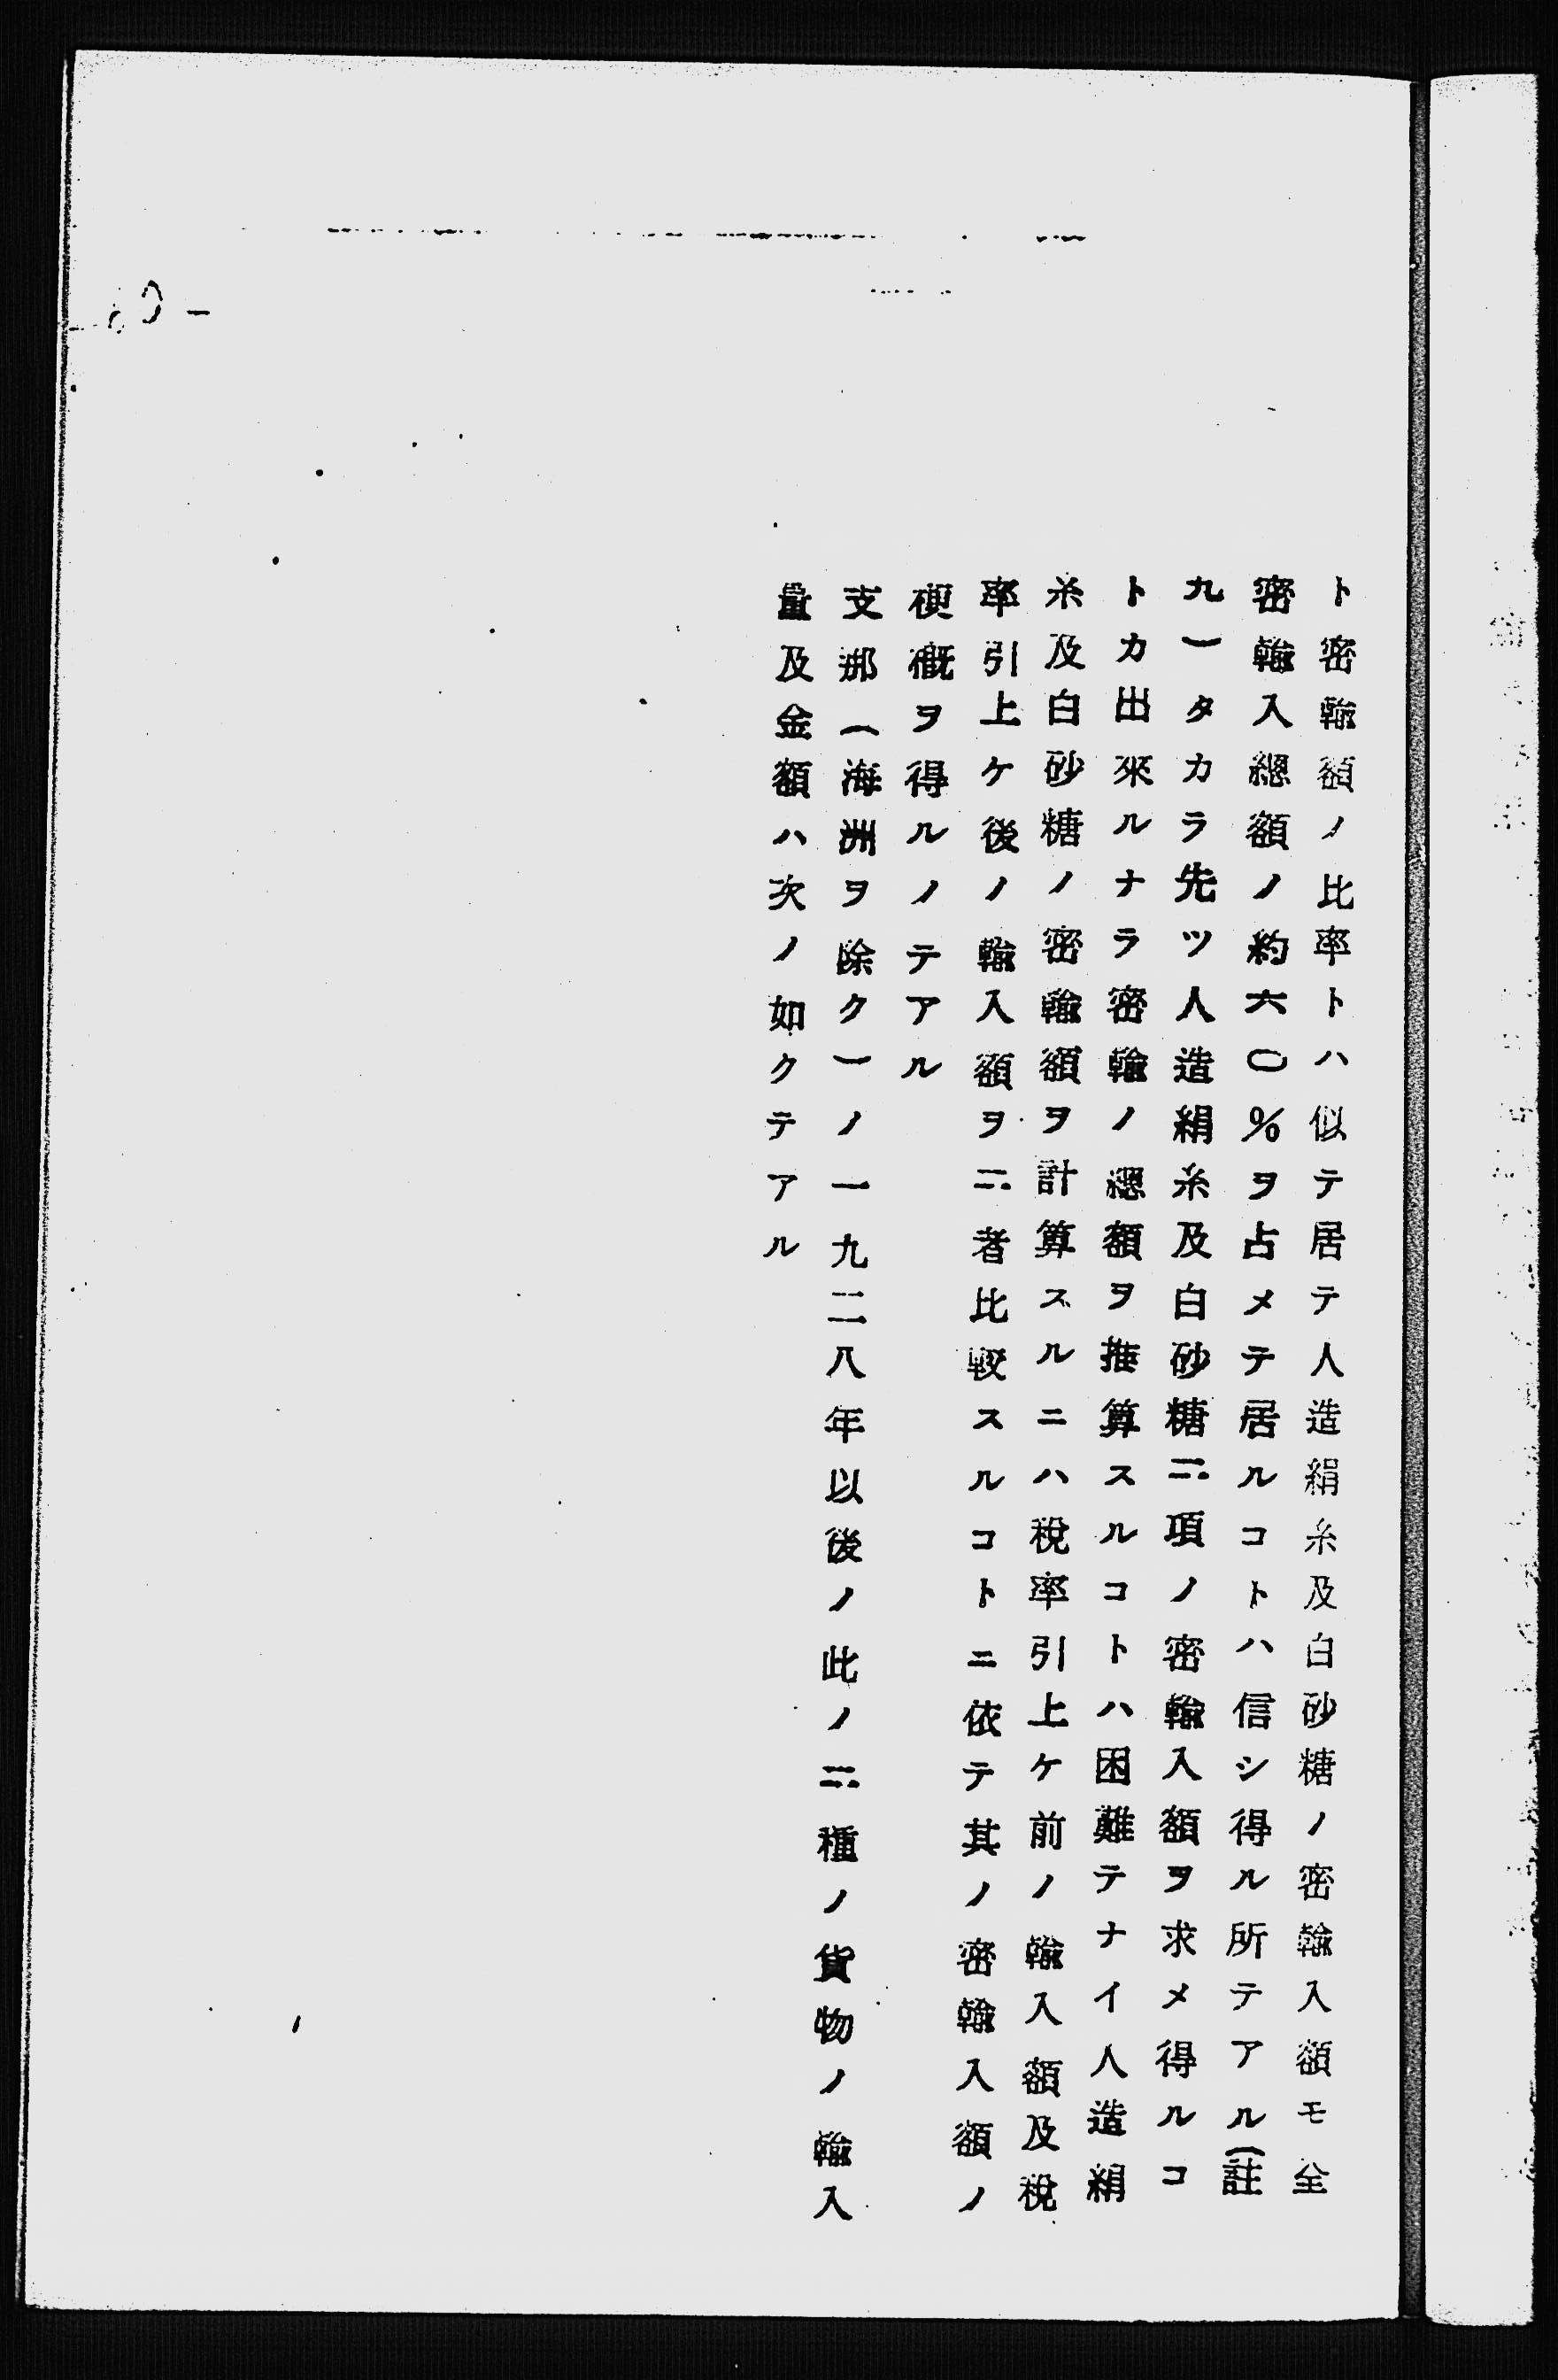 ト密輸額ノ比率トハ似テ居テ人造絹糸及白砂糖ノ密輸入額モ全
密輸入總額ノ約六〇％ヲ占メテ居ルコトハ信シ得ル所テアル（註
九）タカラ先ツ人造絹糸及白砂糖二項ノ密輸入額ヲ求メ得ルコ
トカ出來ルナラ密輸ノ總額ヲ推算スルコトハ困難テナイ人造絹
糸及白砂糖ノ密輸額ヲ計算スルニハ稅率引上ケ前ノ輸入額及稅
率引上ケ後ノ輸入額ヲ二者比較スルコトニ依テ其ノ密輸入額ノ
梗概ヲ得ルノテアル
支那（海洲ヲ除ク）ノ一九二八年以後ノ此ノ二種ノ貨物ノ輸入
量及金額ハ次ノ如クテアル